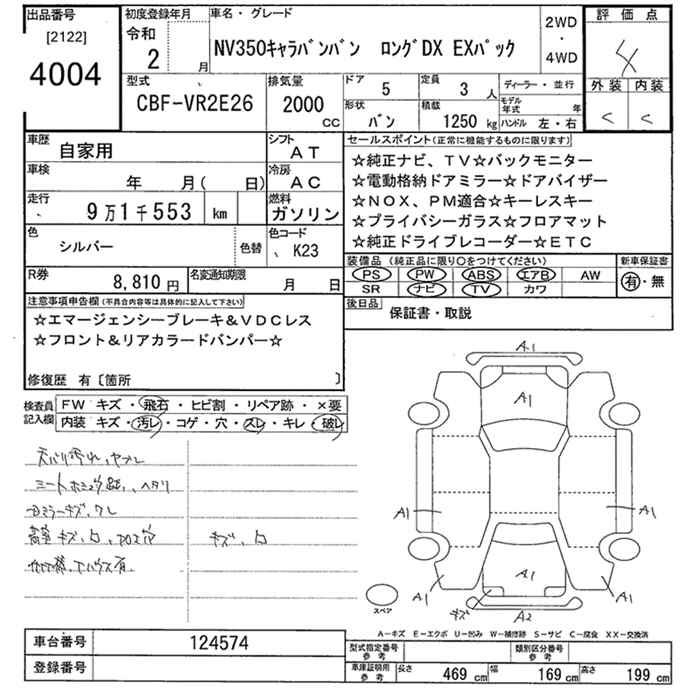 出品番号
[2122]
4004
初度登録年月
令和
2 月
車名・グレード
NV350キャラバンバン ロングDX EXパック
2WD
・
4WD
評価点
4
外装 内装
C C
型式
CBF-VR2E26
排気量
2000
CC
ドア 5
定員 3 人
形状 バン
積載 1250 kg
ディーラー・並行
モデル年式 年
ハンドル 左・右
車歴 自家用
シフト AT
車検 年 月( 日)
冷房 AC
走行 9万1千553 km
燃料 ガソリン
色 シルバー
色替
色コード K23
R券 8,810円
名変通知期限 月 日
セールスポイント(正常に機能するものに限ります)
☆純正ナビ、TV☆バックモニター
☆電動格納ドアミラー☆ドアバイザー
☆NOX、PM適合☆キーレスキー
☆プライバシーガラス☆フロアマット
☆純正ドライブレコーダー☆ETC
装備品(純正品に限り○をつけてください)
PS PW ABS エアB AW
SR ナビ TV カワ
新車保証書
有・無
後日品 保証書・取説
注意事項申告欄(不具合内容等は具体的に記入して下さい)
☆エマージェンシーブレーキ&VDCレス
☆フロント&リアカラードバンパー☆
修復歴 有〔箇所 〕
検査員記入欄
FW キズ・飛石・ヒビ割・リペア跡・×要
内装 キズ・汚レ・コゲ・穴・スレ・キレ・破レ
キズ、凸
A1
A1
A1
A1
A1
A1
A1
キズ
A2
スペア
A-キズ E-エクボ U-凹み W-補修跡 S-サビ C-腐食 XX-交換済
車台番号 124574
登録番号
型式指定番号 参考
類別区分番号 参考
車庫証明用 参考
長さ 469 cm 幅 169 cm 高さ 199 cm